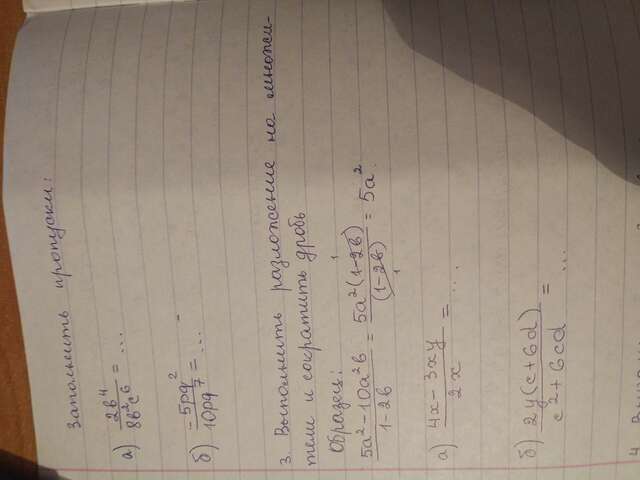 Заполнить пропуски:
а) 2в⁴/8в²с6 = ...
б) -5pq²/10pq⁷ = ...
3. Выполнить разложение на множи-
тели и сократить дробь
Образец:
5a²-10a²в/1-2в = 5a²(1-2в)/(1-2в) = 5a².
а) 4x-3xy/2x = ...
б) 2y(c+6d)/c²+6cd = ...